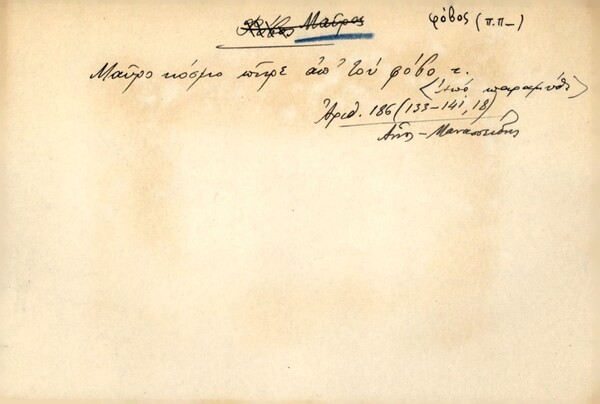 Μαῦρος
φόβος (π.π–)
Μαῦρο κόσμο πῆρε ἀπ' τοῦ φόβο τ.
<ἀπό παραμύθι>
Ἀριθ. 186 (133–141, 18)
Αἶν.–Μανασσείδης